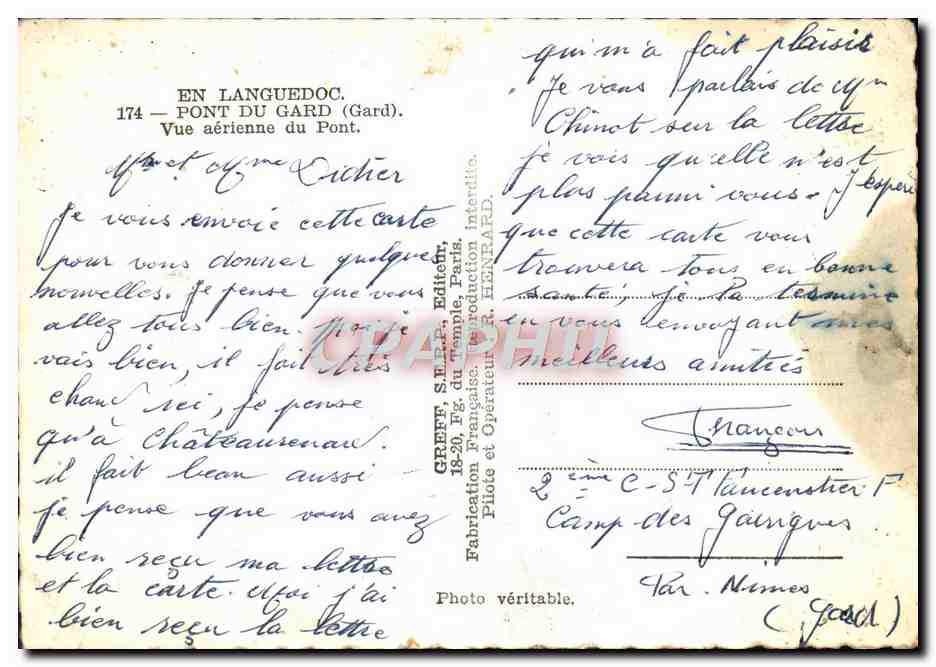 EN LANGUEDOC.
174 — PONT DU GARD (Gard).
Vue aérienne du Pont.
Mr et Mme Didier
Je vous envoie cette carte
pour vous donner quelques
nouvelles. Je pense que vous
allez tous bien. Moi je
vais bien, il fait très
chaud ici, je pense
qu'à Châteaurenard.
il fait beau aussi
je pense que vous avez
bien reçu ma lettre
et la carte. Moi j'ai
bien reçu la lettre
qui m'a fait plaisir
Je vous parlais de Mr
Chinot sur la lettre
je vois qu'elle n'est
plus parmi vous. J'espère
que cette carte vous
trouvera tous en bonne
santé, je la termine
en vous envoyant mes
meilleurs amitiés
François
2ème C - St
Camp des Garrigues
Par. Nimes
(Gard)
GREFF, S.E.R.P., Editeur,
18-20, Fg. du Temple, Paris.
Fabrication Française. Reproduction interdite.
Pilote et Operateur R. HENRARD.
Photo véritable.
CPAPHIL